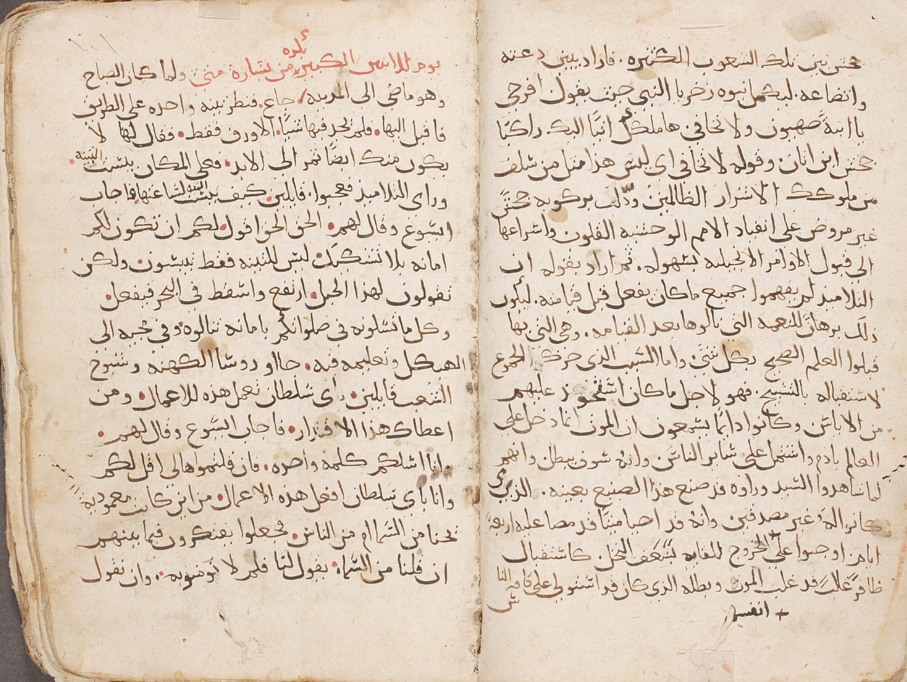 جحش بين تلك الشعوب الكثيره. فاراد يبين دعته
واتضاعه. ليكمل نبوه زخريا النبي حيث يقول افرحي
يا ابنة صهيون ولا تخافي ها ملكك اتيًا اليك راكبًا
جحش ابن اتان. وقوله لا تخافي اي ليس هذا مثل من سلف
من ملوكك الاشرار الظالمين وذلك بركوبه جحشً
غير مروض على انقياد الامم الوحشية القلوب واسراعها
الى قبول الاوامر الانجيليه بسهوله. ثم اراد بقوله ان
التلاميذ لم يفهموا جميع ما كان يفعل قبل قيامته. ليكون
ذلك برهانً للنعمه التي نالوها بعد القيامه. وهي التي بها
قبلوا العلم الصحيح بكل شي. واما السبب الذي حرك الجموع
لاستقباله بالتسبيح. فهو لاجل ما كان استحوذ عليهم
من الاياس وكانوا دايمًا يسمعون ان الموت انما دخل على
العالم بادم واشتمل على ساير الناس وانه سوف يبطل وانهم
لما شاهدوا السيد وراوه قد صنع هذا الصنيع بعينه. الذي
كانوا له غير مصدقين وانه قد احيا ميتًا قد مضا عليه اربعة
ايام. اوجبوا على الخروج للقايه بسعف النخل. كاستقبال
ظافرً غالبً قد غلب الموت وبطله الذي كان قد استولى على كافة الناس
+ انفسهم
يوم الاثنين الكبير تلوه من بشارة متى ولما كان الصباح
وهو ماضي الى المدينه جاع. فنظر تينه واحده على الطريق
فاقبل اليها. فلم يجد فيها شيًا. الا ورق فقط. فقال لها لا
يكون منك ايضًا ثمر الى الابد. وفي المكان يبست التينه.
وراى التلاميذ فعجبوا. قايلين. كيف يبست التينه لساعتها. فاجاب
ايسوع وقال لهم. الحق الحق اقول لكم ان تكون لكم
امانه بلا تشكيك ليس للتينه فقط تييسون. ولكن
تقولون لهذا الجبل ارتفع واسقط في البحر فيفعل.
وكل ما تسلونه في صلواتكم بامانه تنالوه. وفي مجيه الى
الهيكل وتعليمه فيه. جااو روسا الكهنه وشيوخ
الشعب قايلين. باي سلطان تعمل هذه للاعمال. ومن
اعطاك هذا الاقتدار. فاجاب ايسوع وقال لهم.
وانا اسلكم كلمه واحده. فان قلتموها لي اقل لكم
وانا باي سلطان افعل هذه الاعمال. من اين كانت معموديه
يحنا من السما ام من الناس. فجعلوا يفتكرون فيما بينهم
ان قلنا من السما. يقول لنا فلم لا تومنو به. وان نقول